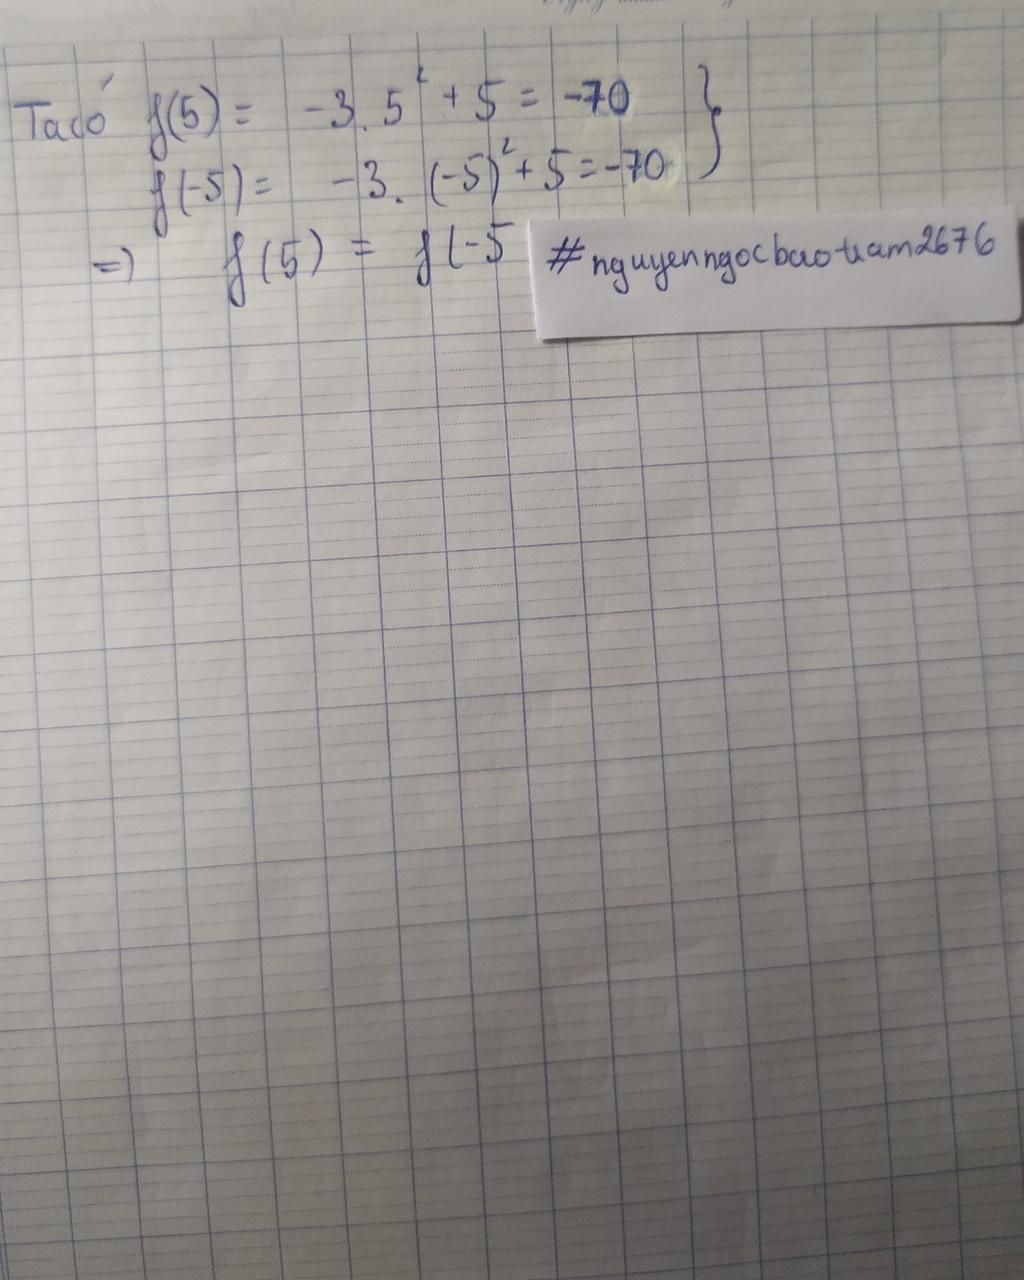 Ta có f(5) = -3. 5² + 5 = -70 }
f(-5) = -3. (-5)² + 5 = -70
=) f(5) = f(-5
#nguyenngocbaotram2676